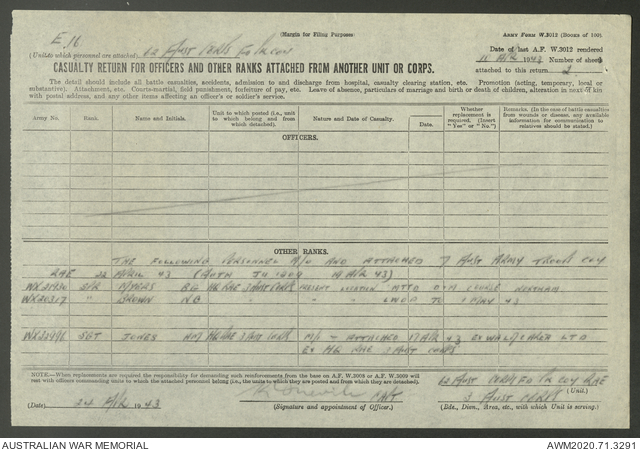 E.16
(Margin for Filing Purposes
ARMY FORM W.3012 (BOOKS OF 100)
(Unit to which personnel are attached) 12 Aust Corps Fd Pk Coy
Date of last A.F. W.3012 rendered
1943
CASUALTY RETURN FOR OFFICERS AND OTHER RANKS ATTACHED FROM ANOTHER UNIT OR CORPS.
Number of sheets attached to this return 2
The detail should include all battle casualties, accidents, admission to and discharge from hospital, casualty clearing station, etc. Promotion (acting, temporary, local or
substantive). Attachment, etc. Courts-martial, field punishment, forfeiture of pay, etc. Leave of absence, particulars of marriage and birth or death of children, alteration in next of kin
with postal address, and any other items affecting an officer's or soldier's service.
Army No.
Rank.
Name and Initials.
Unit to which posted (i.e., unit to which belonging and from which detached).
Nature and Date of Casualty.
Date.
Whether replacement is required. (Insert "Yes" or "No.")
Remarks. (In the case of battle casualties from wounds or disease, any available information for communication to relatives should be stated.)
OFFICERS.
OTHER RANKS.
THE FOLLOWING PERSONNEL M/O AND ATTACHED 7 AUST ARMY TROOPS COY
RAE 22 APRIL 43 (AUTH 19 APR 43)
SPR MYERS BG HQ RAE 3 AUST CORPS
" BROWN NB " " " LWOP TO 1 MAY 43
WX22996 SGT JONES HQ RAE 3 AUST CORPS M/O - ATTACHED 17 APR 43 LTD
EX HQ RAE 3 AUST CORPS
NOTE.—When replacements are required the responsibility for demanding such reinforcements from the base on A.F. W.3008 or A.F. W.3009 will
rest with officers commanding units to which the attached personnel belong (i.e., the unit to which they are posted and from which they are detached).
(Date) 24 APR 1943
CAPT
(Signature and appointment of Officer.)
12 AUST CORPS FD PK COY RAE
(Unit.)
3 AUST CORPS
(Bde., Divn., Area, etc., with which Unit is serving.)
AUSTRALIAN WAR MEMORIAL
AWM2020.71.3291